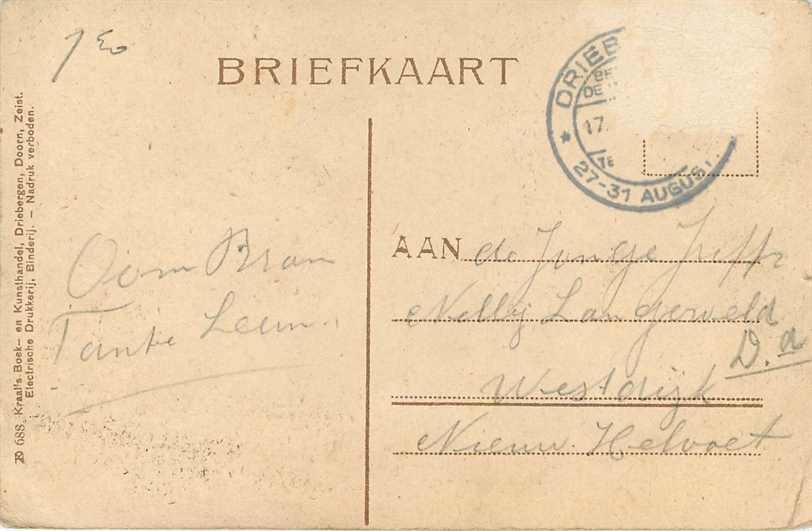 BRIEFKAART
DRIEB
BE
DE
17.
TE
* 27-31 AUGUS
Oom Bram
Tante Leun.
AAN de Jonge Juffr
Nellij Langerveld
D.a
Westdijk
Nieuw. Helvoet
688. Kraal's Boek- en Kunsthandel, Driebergen, Doorn, Zeist.
Electrische Drukkerij, Binderij. — Nadruk verboden.